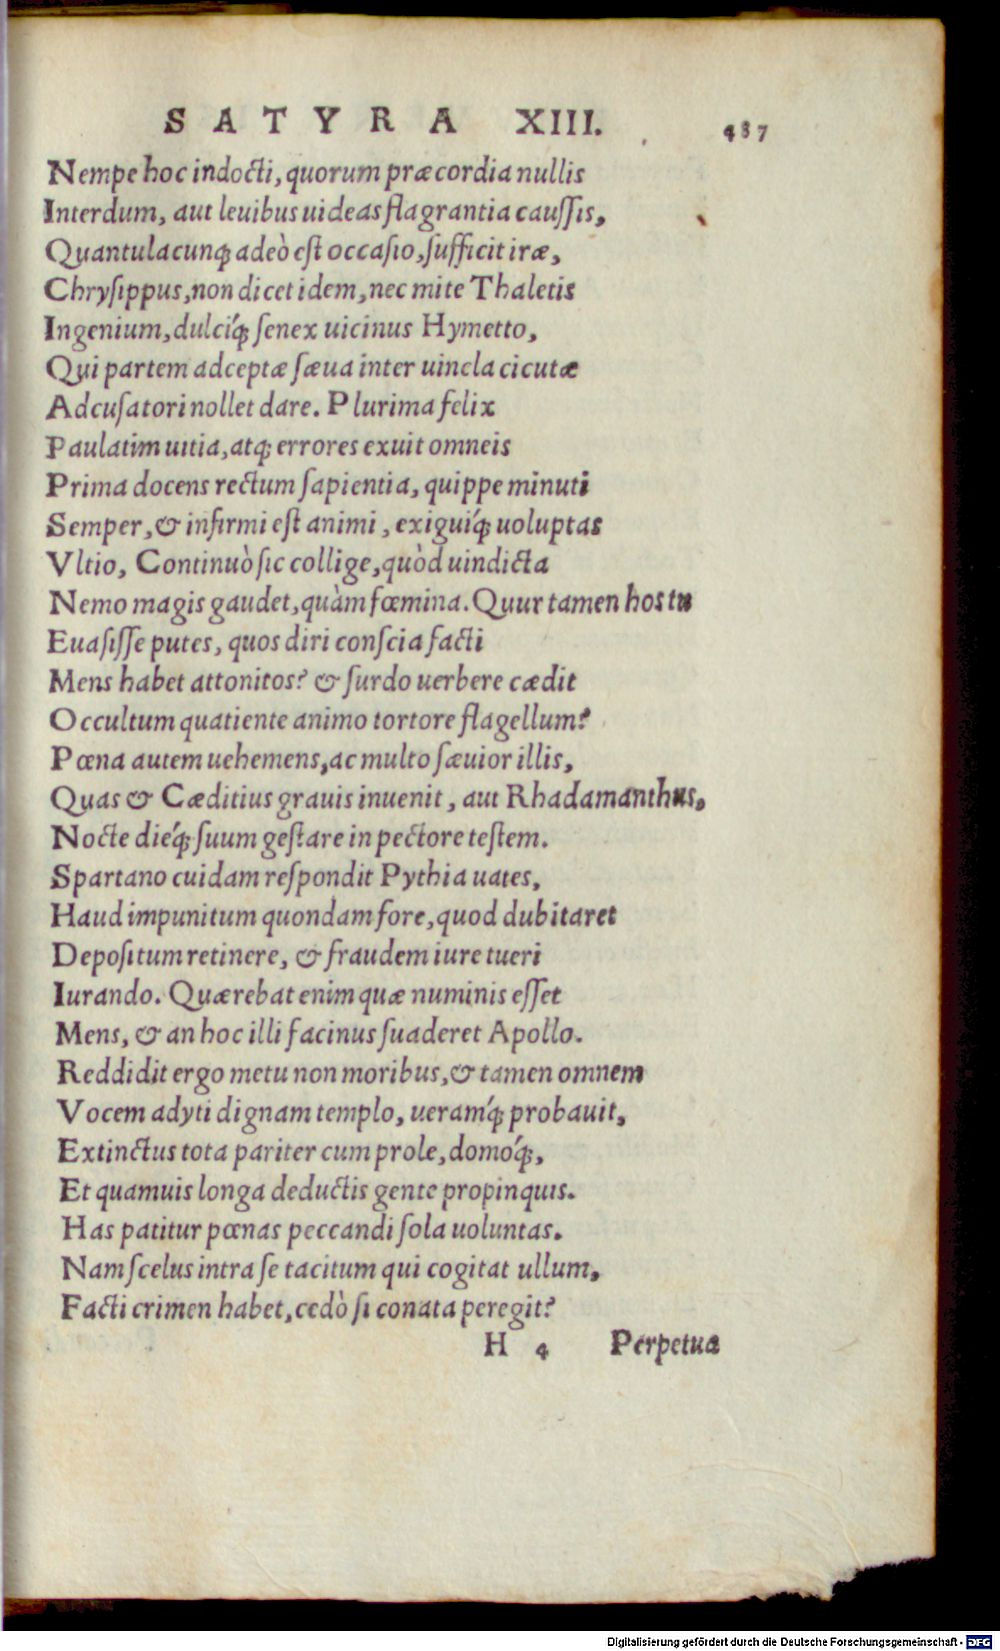 SATYRA XIII. 487
Nempe hoc indocti, quorum præcordia nullis
Interdum, aut leuibus uideas flagrantia caußis,
Quantulacunq; adeò est occasio, sufficit iræ,
Chrysippus, non dicet idem, nec mite Thaletis
Ingenium, dulciq́; senex uicinus Hymetto,
Qui partem adceptæ sæua inter uincla cicutæ
Adcusatori nollet dare. Plurima felix
Paulatim uitia, atq; errores exuit omneis
Prima docens rectum sapientia, quippe minuti
Semper, & infirmi est animi, exiguiq́; uoluptas
Vltio, Continuò sic collige, quòd uindicta
Nemo magis gaudet, quàm fœmina. Quur tamen hos tu
Euasisse putes, quos diri conscia facti
Mens habet attonitos? & surdo uerbere cædit
Occultum quatiente animo tortore flagellum?
Pœna autem uehemens, ac multo sæuior illis,
Quas & Cæditius grauis inuenit, aut Rhadamanthus,
Nocte dieq́; suum gestare in pectore testem.
Spartano cuidam respondit Pythia uates,
Haud impunitum quondam fore, quod dubitaret
Depositum retinere, & fraudem iure tueri
Iurando. Quærebat enim quæ numinis esset
Mens, & an hoc illi facinus suaderet Apollo.
Reddidit ergo metu non moribus, & tamen omnem
Vocem adyti dignam templo, ueramq́; probauit,
Extinctus tota pariter cum prole, domoq́;,
Et quamuis longa deductis gente propinquis.
Has patitur pœnas peccandi sola uoluntas.
Nam scelus intra se tacitum qui cogitat ullum,
Facti crimen habet, cedò si conata peregit?
H 4 Perpetua
Digitalisierung gefördert durch die Deutsche Forschungsgemeinschaft - DFG